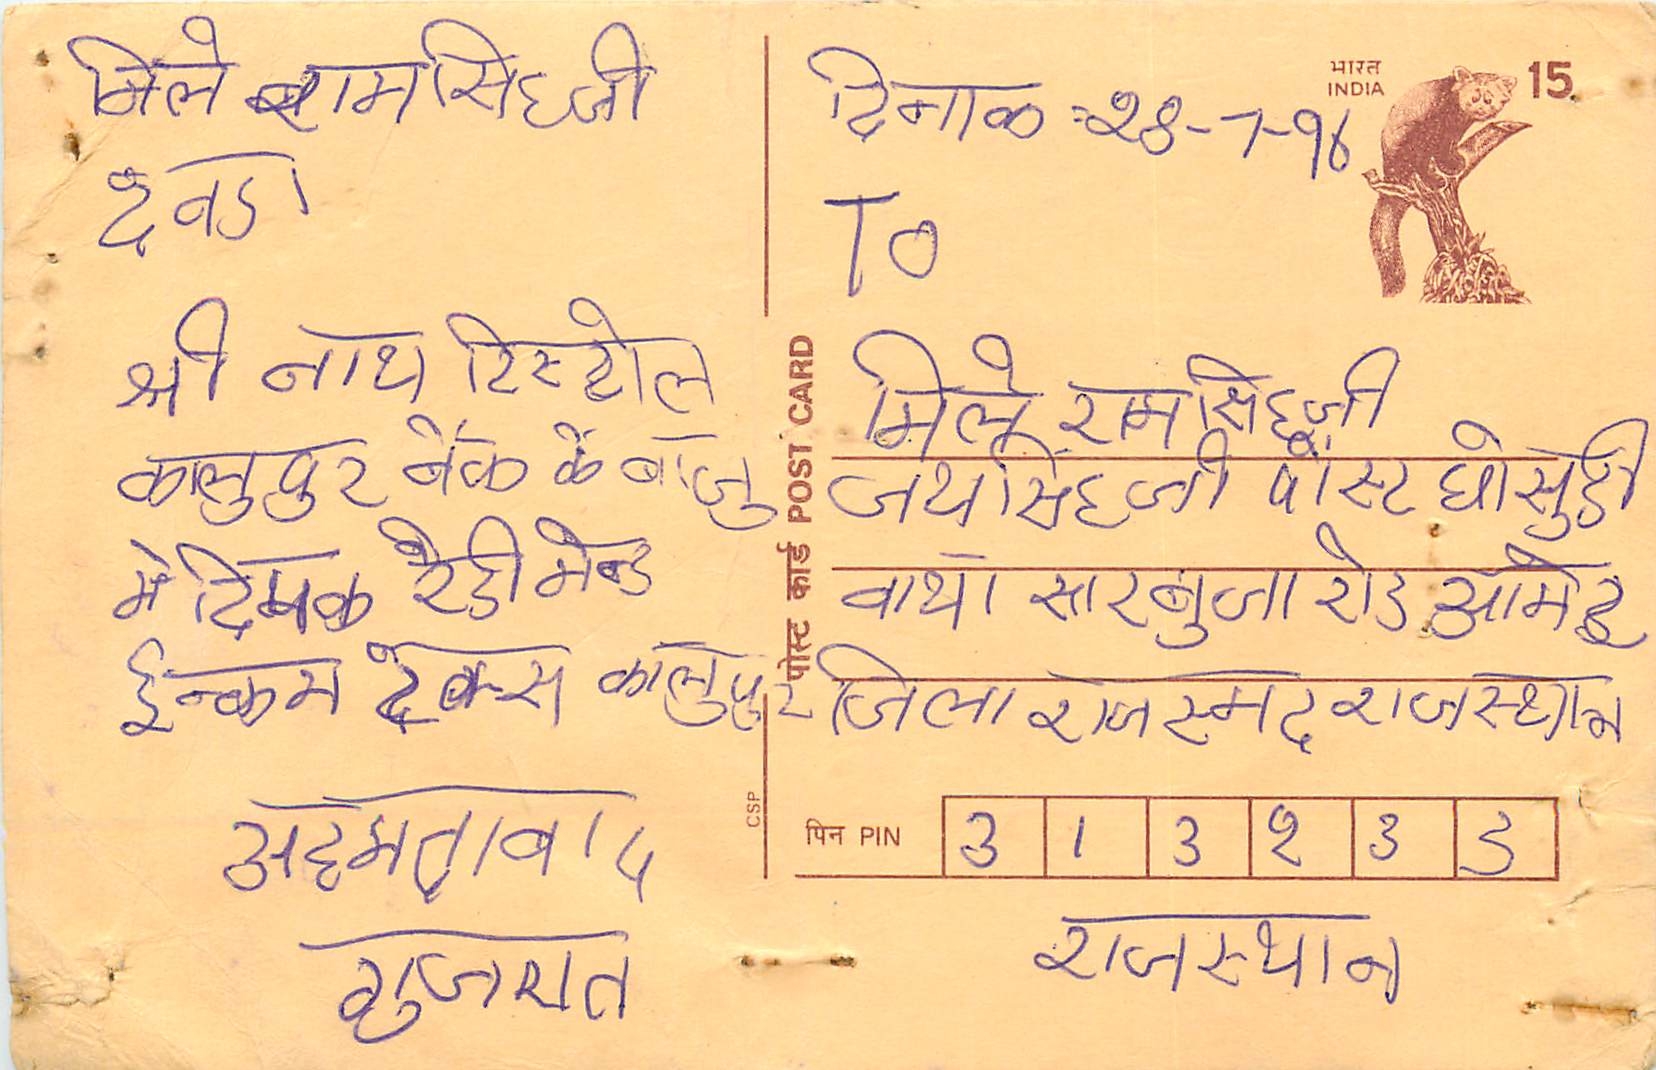 मिले रामसिहजी
देवडा
श्री नाथ टिस्टोल
कालुपुर बैंक कें बाजु
मे दिपक रेडीमेन्ड
ईन्कम टेक्स कालुपुर
अहमदाबाद
गुजरात
भारत
INDIA
15
दिनाक :-28-7-96
TO
मिले रामसिहजी
जयसिंहजी पोस्ट घोसुडी
वाया सारबुजा रोड आमेट
जिला राजस्मद राजस्थान
पिन PIN 3 1 3 2 3 5
राजस्थान
पोस्ट कार्ड POST CARD
CSP